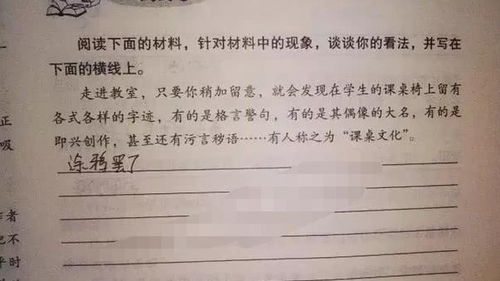 阅读下面的材料，针对材料中的现象，谈谈你的看法，并写在
下面的横线上。
走进教室，只要你稍加留意，就会发现在学生的课桌椅上留有
各式各样的字迹，有的是格言警句，有的是其偶像的大名，有的是
即兴创作，甚至还有污言秽语……有人称之为“课桌文化”。
涂鸦罢了
正
吸
作者
也不
平时